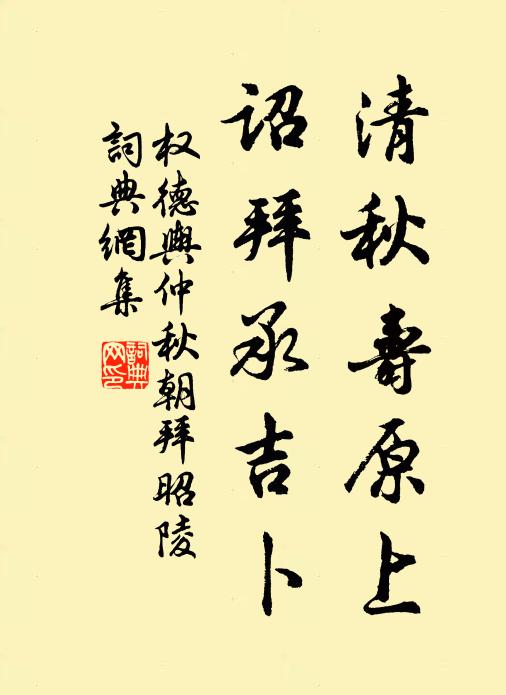 清秋壽原上
詔拜承吉卜
权德輿仲秋朝拜昭陵
詞典網集
詞典网印